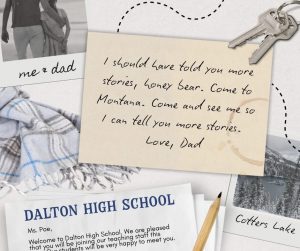 me & dad
I should have told you more
stories, honey bear. Come to
Montana. Come and see me so
I can tell you more stories.
Love, Dad
DALTON HIGH SCHOOL
Ms. Poe,
Welcome to Dalton High School. We are pleased
that you will be joining our teaching staff this
students will be very happy to meet you.
Cotters Lake